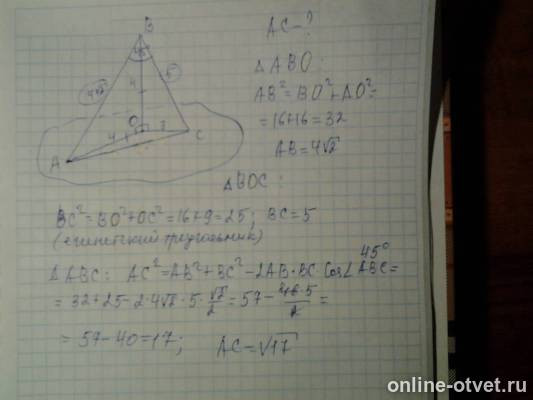 B
AC - ?
4√2
5
4
O
4
3
C
A
ΔABO:
AB² = BO² + AO² =
= 16 + 16 = 32
AB = 4√2
ΔBOC:
BC² = BO² + OC² = 16 + 9 = 25; BC = 5
(египетский треугольник)
45°
ΔABC: AC² = AB² + BC² - 2AB · BC · Cos∠ABC =
= 32 + 25 - 2 · 4√2 · 5 · √2/2 = 57 - 5/2 =
= 57 - 40 = 17; AC = √17
online-otvet.ru